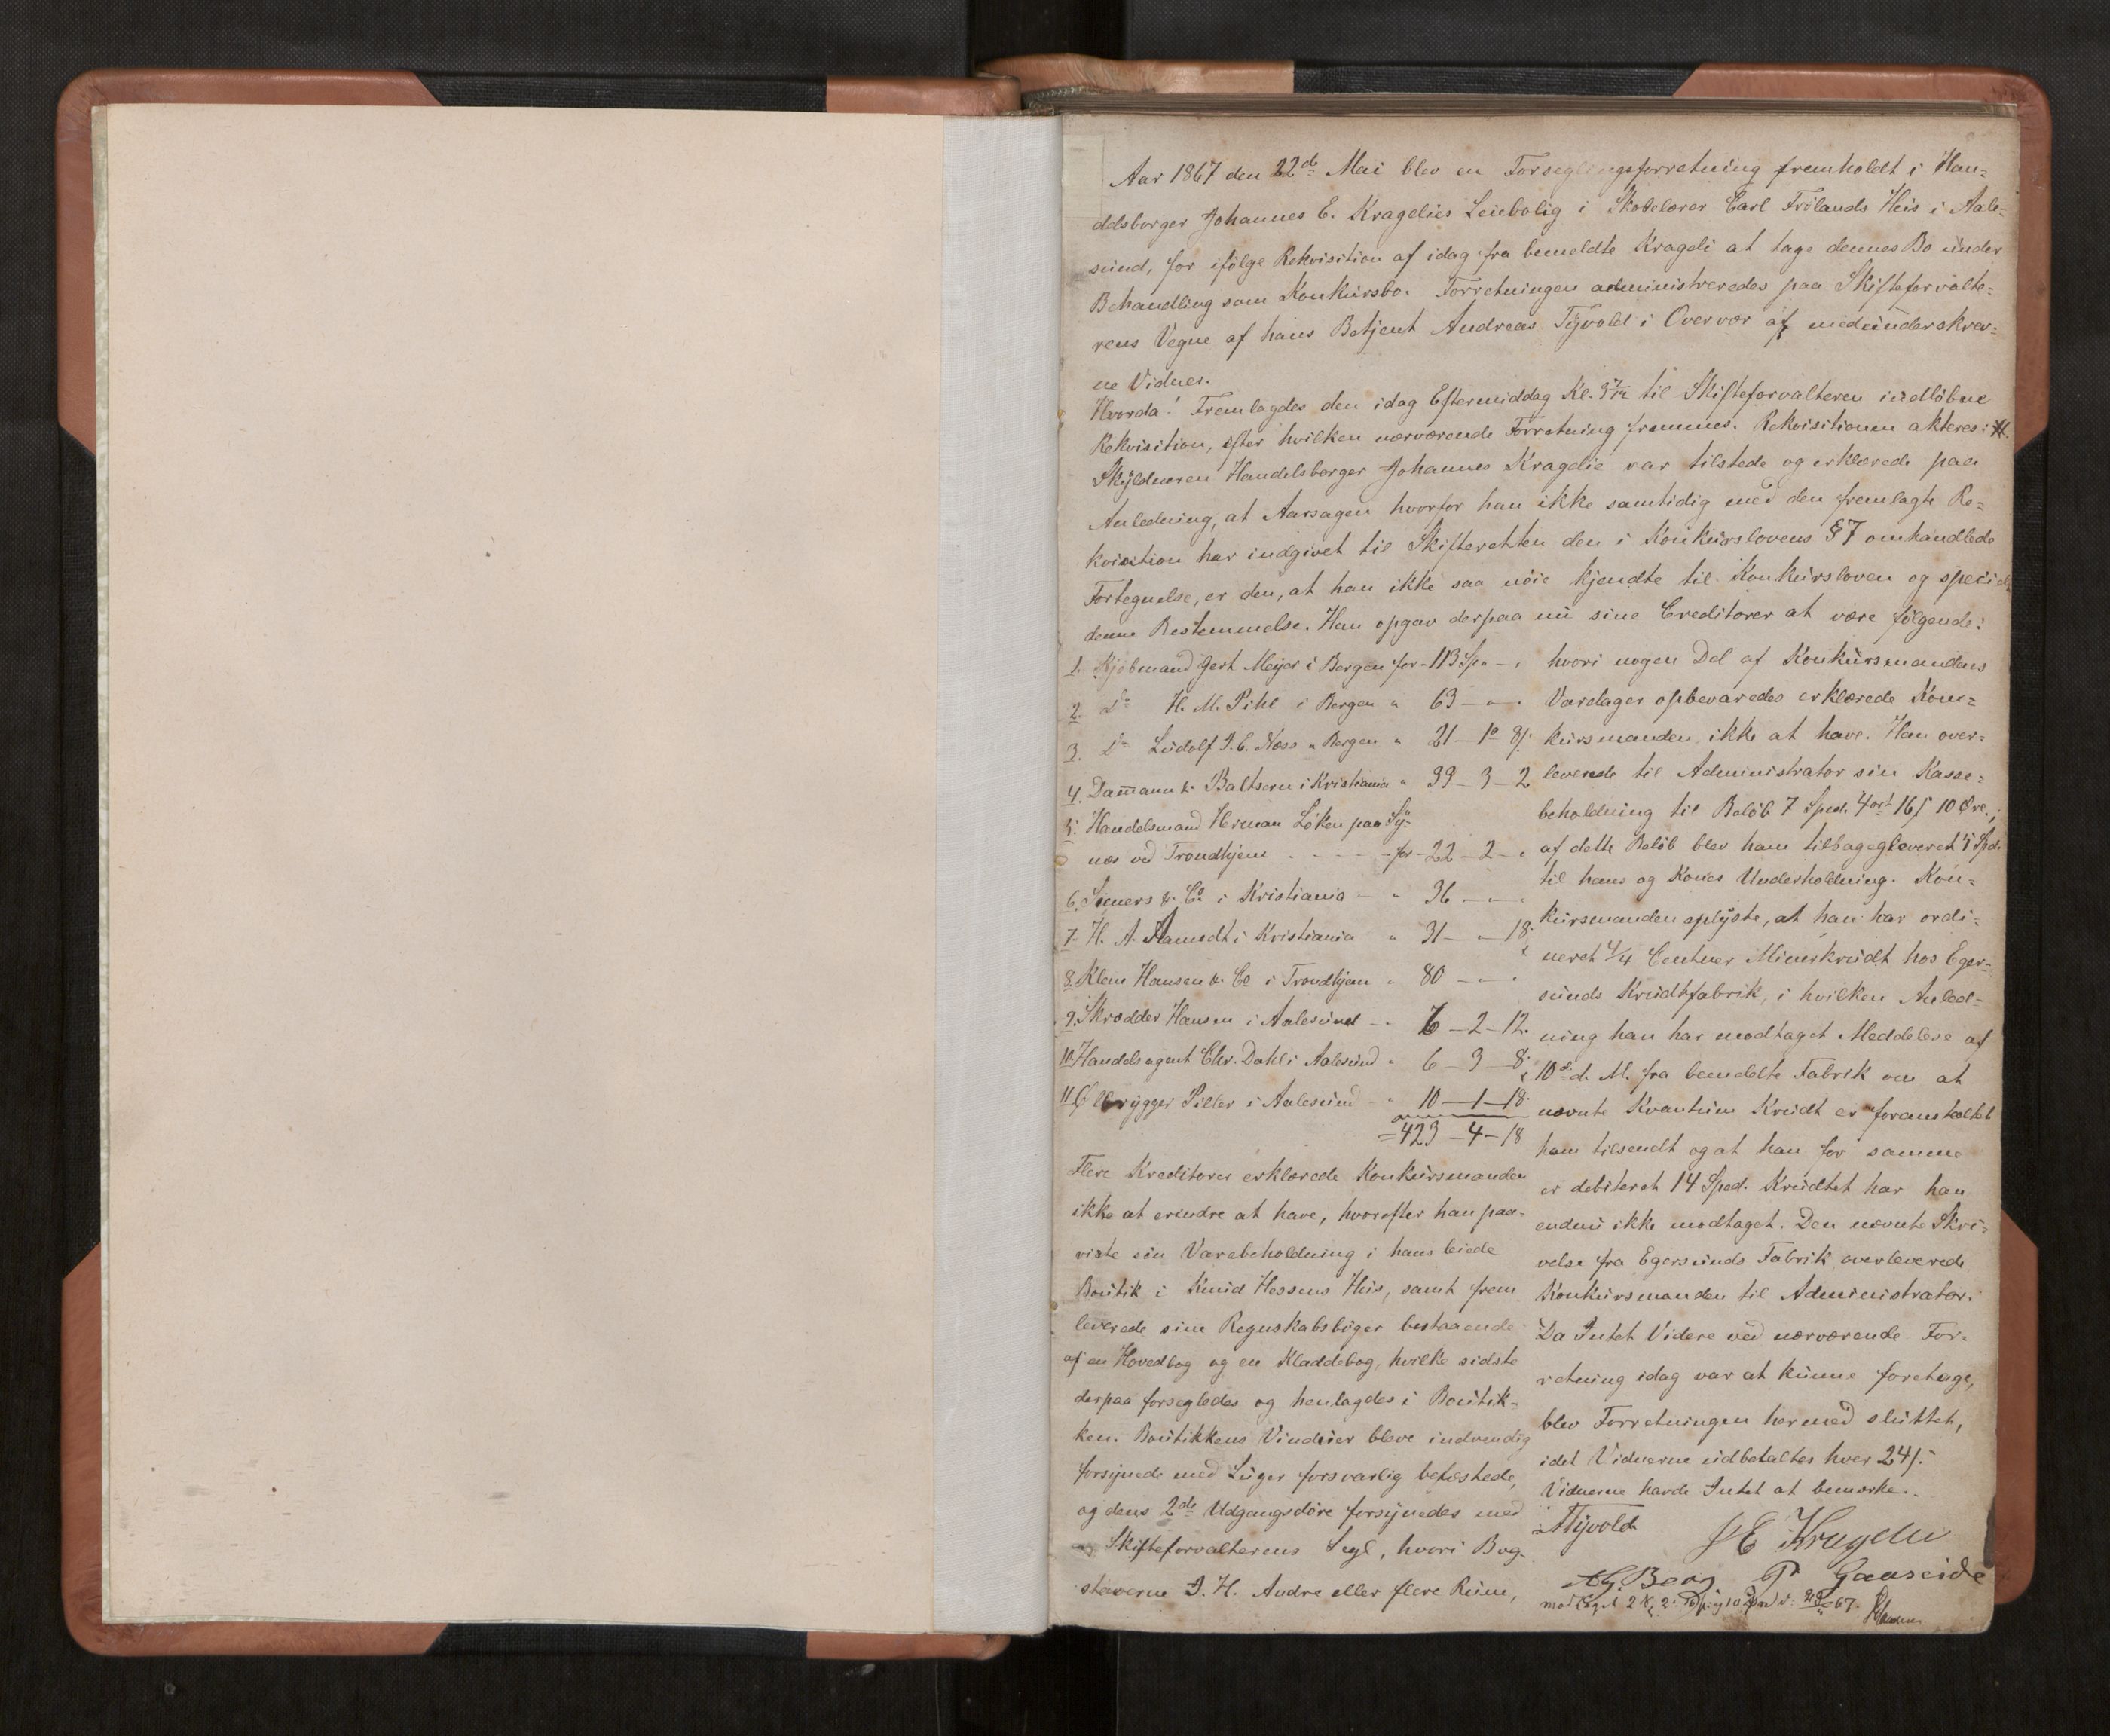 Aar 1867 den 22de Mai blev en Forseglingsforretning fremholdt i Han-
delsborger Johannes E. Kragelies Leiebolig i Skolelærer Carl Frölands Hus i Aale-
sund, for ifölge Rekvisition af idag fra bemeldte Krageli at tage dennes Bo under
Behandling som Konkursbo. Forretningen administreredes paa Skifteforvalte-
rens Vegne af hans Betjent Andreas Tyvold i Overvær af medunderskrev-
ne Vidner.
Hvorda! Fremlagdes den idag Eftermiddag Kl. til Skifteforvalteren indlöbne
Rekvisition, efter hvilken nærværende Forretning fremmes. Rekvisitionen akteres:
Skyldneren Handelsborger Johannes Kragelie var tilstede og erklærede paa
Anledning, at Aarsagen hvorfor han ikke samtidig med den fremlagte Re-
kvisition har indgivet til Skifteretten den i Konkurslovens §7 omhandlede
Fortegnelse, er den, at han ikke saa nöie kjendte til Konkursloven og speciel
denne Bestemmelse. Han opgav derpaa nu sine Creditorer at være fölgende:
1. Kjöbmand Gert Meyer i Bergen for - 113 Sp. " - .
2. Do H. M. Pihl i Bergen " 63 - " - .
3. Do Ludolf J. E. Næss " Bergen " 21 - 1 o 8 s.
4. Damann & Baltsern i Kristiania " 39 - 3 - 2
5. Handelsmand Herman Löken paa Sy-
næs ved Trondhjem - - - - for - 22 - 2 - .
6. Siemers & Co i Kristiania - " 36 - " - .
7. H. A. Hamedt i Kristiania " 31 - " - 18.
8. Klem Hansen & Co i Trondhjem " 80 - " - .
9. Skrædder Hansen i Aalesund - " 6 - 2 - 12.
10. Handelsagent Chr. Dahl i Aalesund " 6 - 3 - 8.
11. Ölbrygger Piller i Aalesund - " 10 - 1 - 18.
= 423 - 4 - 18
Flere Kreditorer erklærede Konkursmanden
ikke at erindre at have, hvorefter han paa-
viste sin Varebeholdning i hans leiede
Boutik i Knud Hessens Hus, samt frem
leverede sine Regnskabsböger bestaaende
af en Hovedbog og en Kladdebog, hvilke sidste
derpaa forsegledes og henlagdes i Boutik-
ken. Boutikkens Vinduer bleve indvendig
forsynede med Luger forsvarlig befæstede,
og dens 2de Udgangsdöre forsynedes med
Skifteforvalterens Segl, hvori Bog-
staverne J. H. Andre eller flere Rum,
hvori nogen Del af Konkursmandens
Varelager opbevaredes erklærede Kon-
kursmanden ikke at have. Han over-
leverede til Administrator sin Kasse-
beholdning til Belöb 7 Sped. 4 ort 16 s 10 Öre;
af dette Belöb blev ham tilbageleveret 5 Spd.
til hans og Kones Underholdning. Kon-
kursmanden oplyste, at han har ordi-
neret 4/4 Centner Minerkrudt hos Eger-
sunds Krudtfabrik, i hvilken Anled-
ning han har modtaget Meddelese af
10de d. M. fra bemeldte Fabrik om at
nævnte Kvantum Krudt er foranstaltet
ham tilsendt og at han for samme
er debiteret 14 Sped. Krudtet har han
endnu ikke modtaget. Den nævnte Skri-
velse fra Egersunds Fabrik overleverede
Konkursmanden til Administrator.
Da Intet Videre ved nærværende For-
retning idag var at kunne foretage,
blev Forretningen hermed sluttet,
idet Vidnerne udbetaltes hver 24 s.
Vidnerne havde Intet at bemærke.
ATyvold
J E Kragelie
A G. Berg P Gaaseide
modtaget